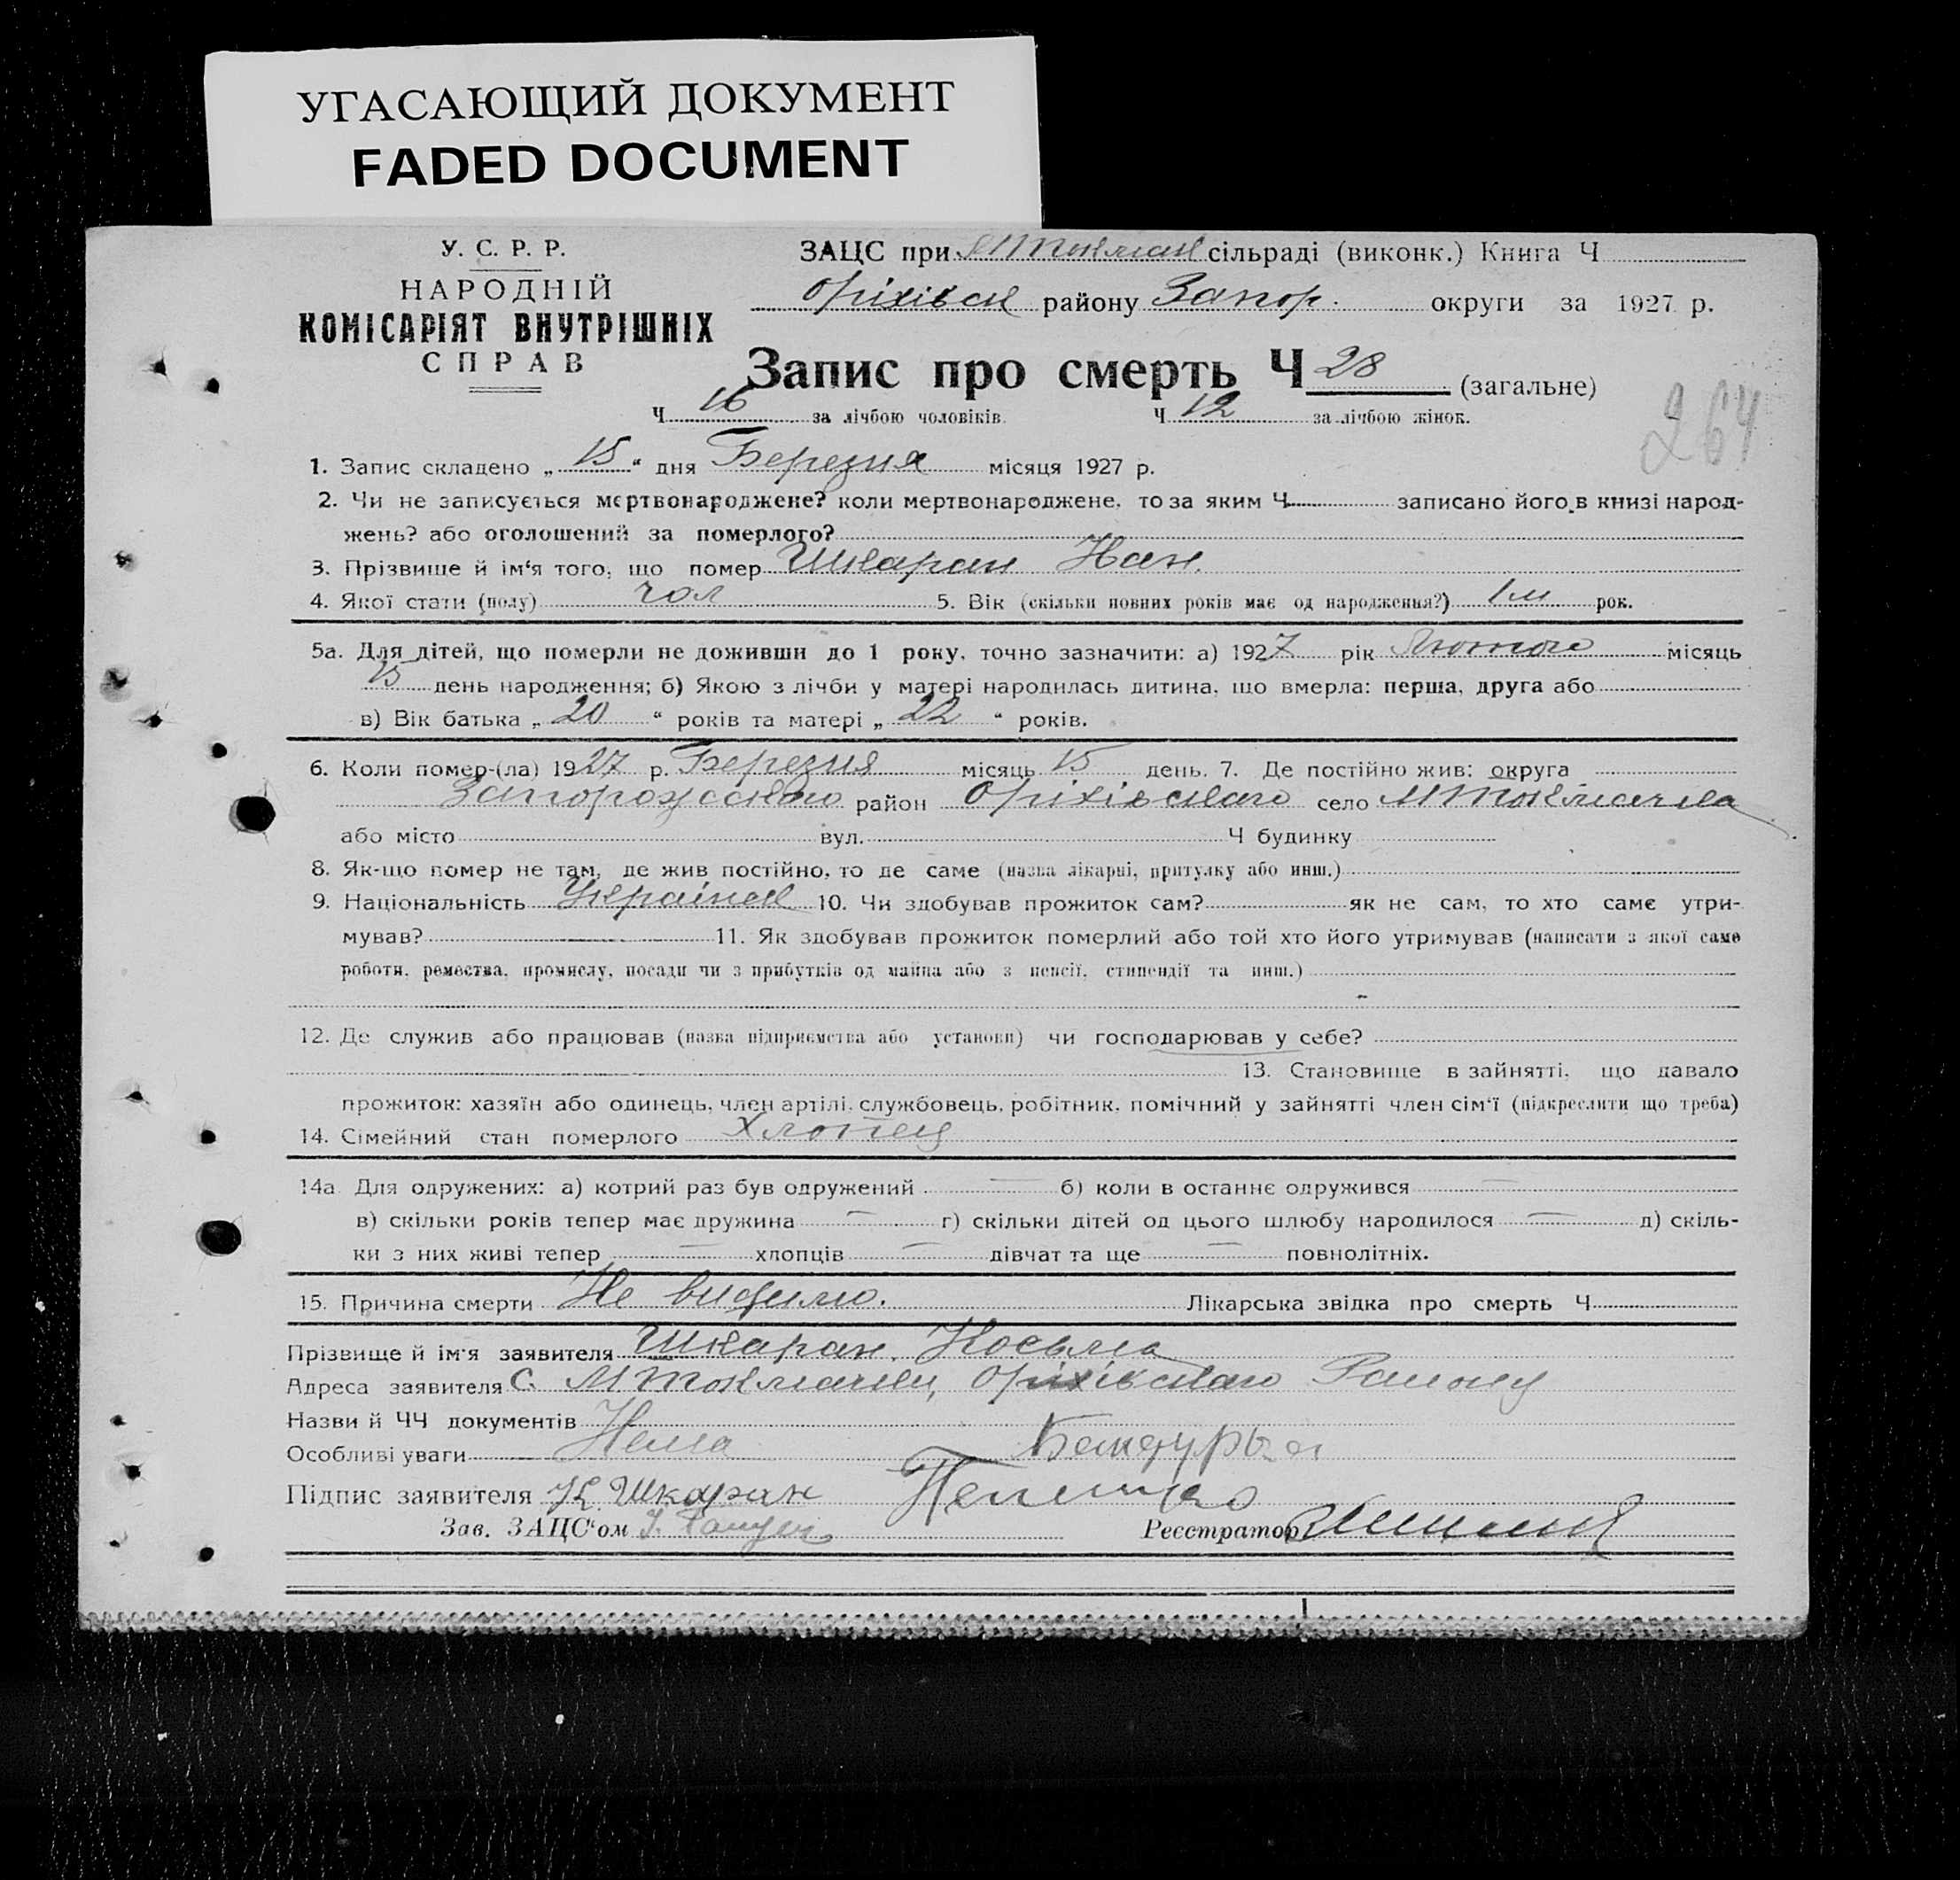 УГАСАЮЩИЙ ДОКУМЕНТ
FADED DOCUMENT
У. С. Р. Р.
НАРОДНІЙ
КОМІСАРІЯТ ВНУТРІШНІХ
СПРАВ
ЗАЦС при МТокмак сільраді (виконк.) Книга Ч
Оріхівськ району Запор. округи за 1927 р.
Запис про смерть Ч 28 (загальне)
Ч 16 за лічбою чоловіків. Ч 12 за лічбою жінок.
264
1. Запис складено „ 15 “ дня Березня місяця 1927 р.
2. Чи не записується мертвонароджене? коли мертвонароджене, то за яким Ч записано його в книзі народ-
жень? або оголошений за померлого?
3. Прізвище й ім'я того, що помер Шкаран
4. Якої стати (полу) чол 5. Вік (скільки повних років має од народження?) 1 м рок.
5а. Для дітей, що померли не доживши до 1 року, точно зазначити: а) 1927 рік Лютого місяць
15 день народження; б) Якою з лічби у матері народилась дитина, що вмерла: перша, друга або
в) Вік батька „ 20 “ років та матері „ 22 “ років.
6. Коли помер-(ла) 1927 р. Березня місяць 15 день. 7. Де постійно жив: округа
Запорожського район Оріхівського село МТокмачка
або місто вул. Ч будинку
8. Як-що помер не там, де жив постійно, то де саме (назва лікарні, притулку або инш.)
9. Національність Україн 10. Чи здобував прожиток сам? як не сам, то хто саме утри-
мував? 11. Як здобував прожиток померлий або той хто його утримував (написати з якої саме
роботи, ремества, промислу, посади чи з прибутків од майна або з пенсії, стипендії та инш.)
12. Де служив або працював (назва підприємства або установи) чи господарював у себе?
13. Становище в зайнятті, що давало
прожиток: хазяїн або одинець, член артілі, службовець, робітник, помічний у зайнятті член сім'ї (підкреслити що треба)
14. Сімейний стан померлого Хлопец
14а Для одружених: а) котрий раз був одружений — б) коли в останнє одружився —
в) скільки років тепер має дружина — г) скільки дітей од цього шлюбу народилося — д) скіль-
ки з них живі тепер — хлопців — дівчат та ще — повнолітніх.
15. Причина смерти Не видимо. Лікарська звідка про смерть Ч
Прізвище й ім'я заявителя Шкаран, Косьма
Адреса заявителя С. МТокмачки, Оріхівського Району
Назви й ЧЧ документів
Особливі уваги Нема
Підпис заявителя К Шкаран
Зав. ЗАЦС'ом
Реєстратор